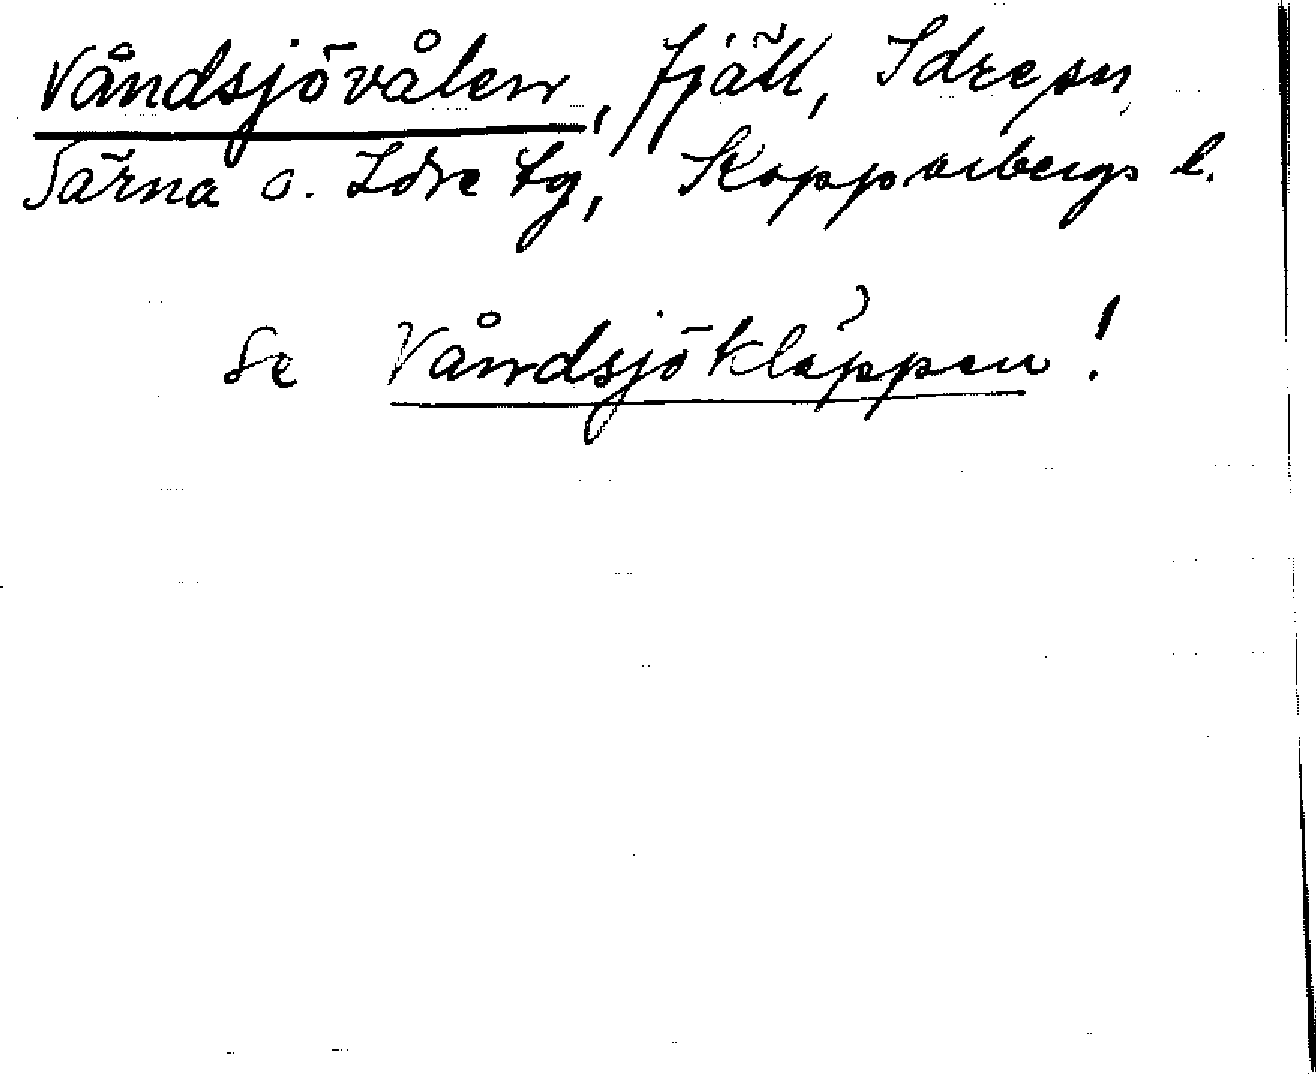 Våndsjövålen, fjäll, Idre sn
Särna o. Idre tg, Kopparbergs l.
Se Våndsjökläppen!